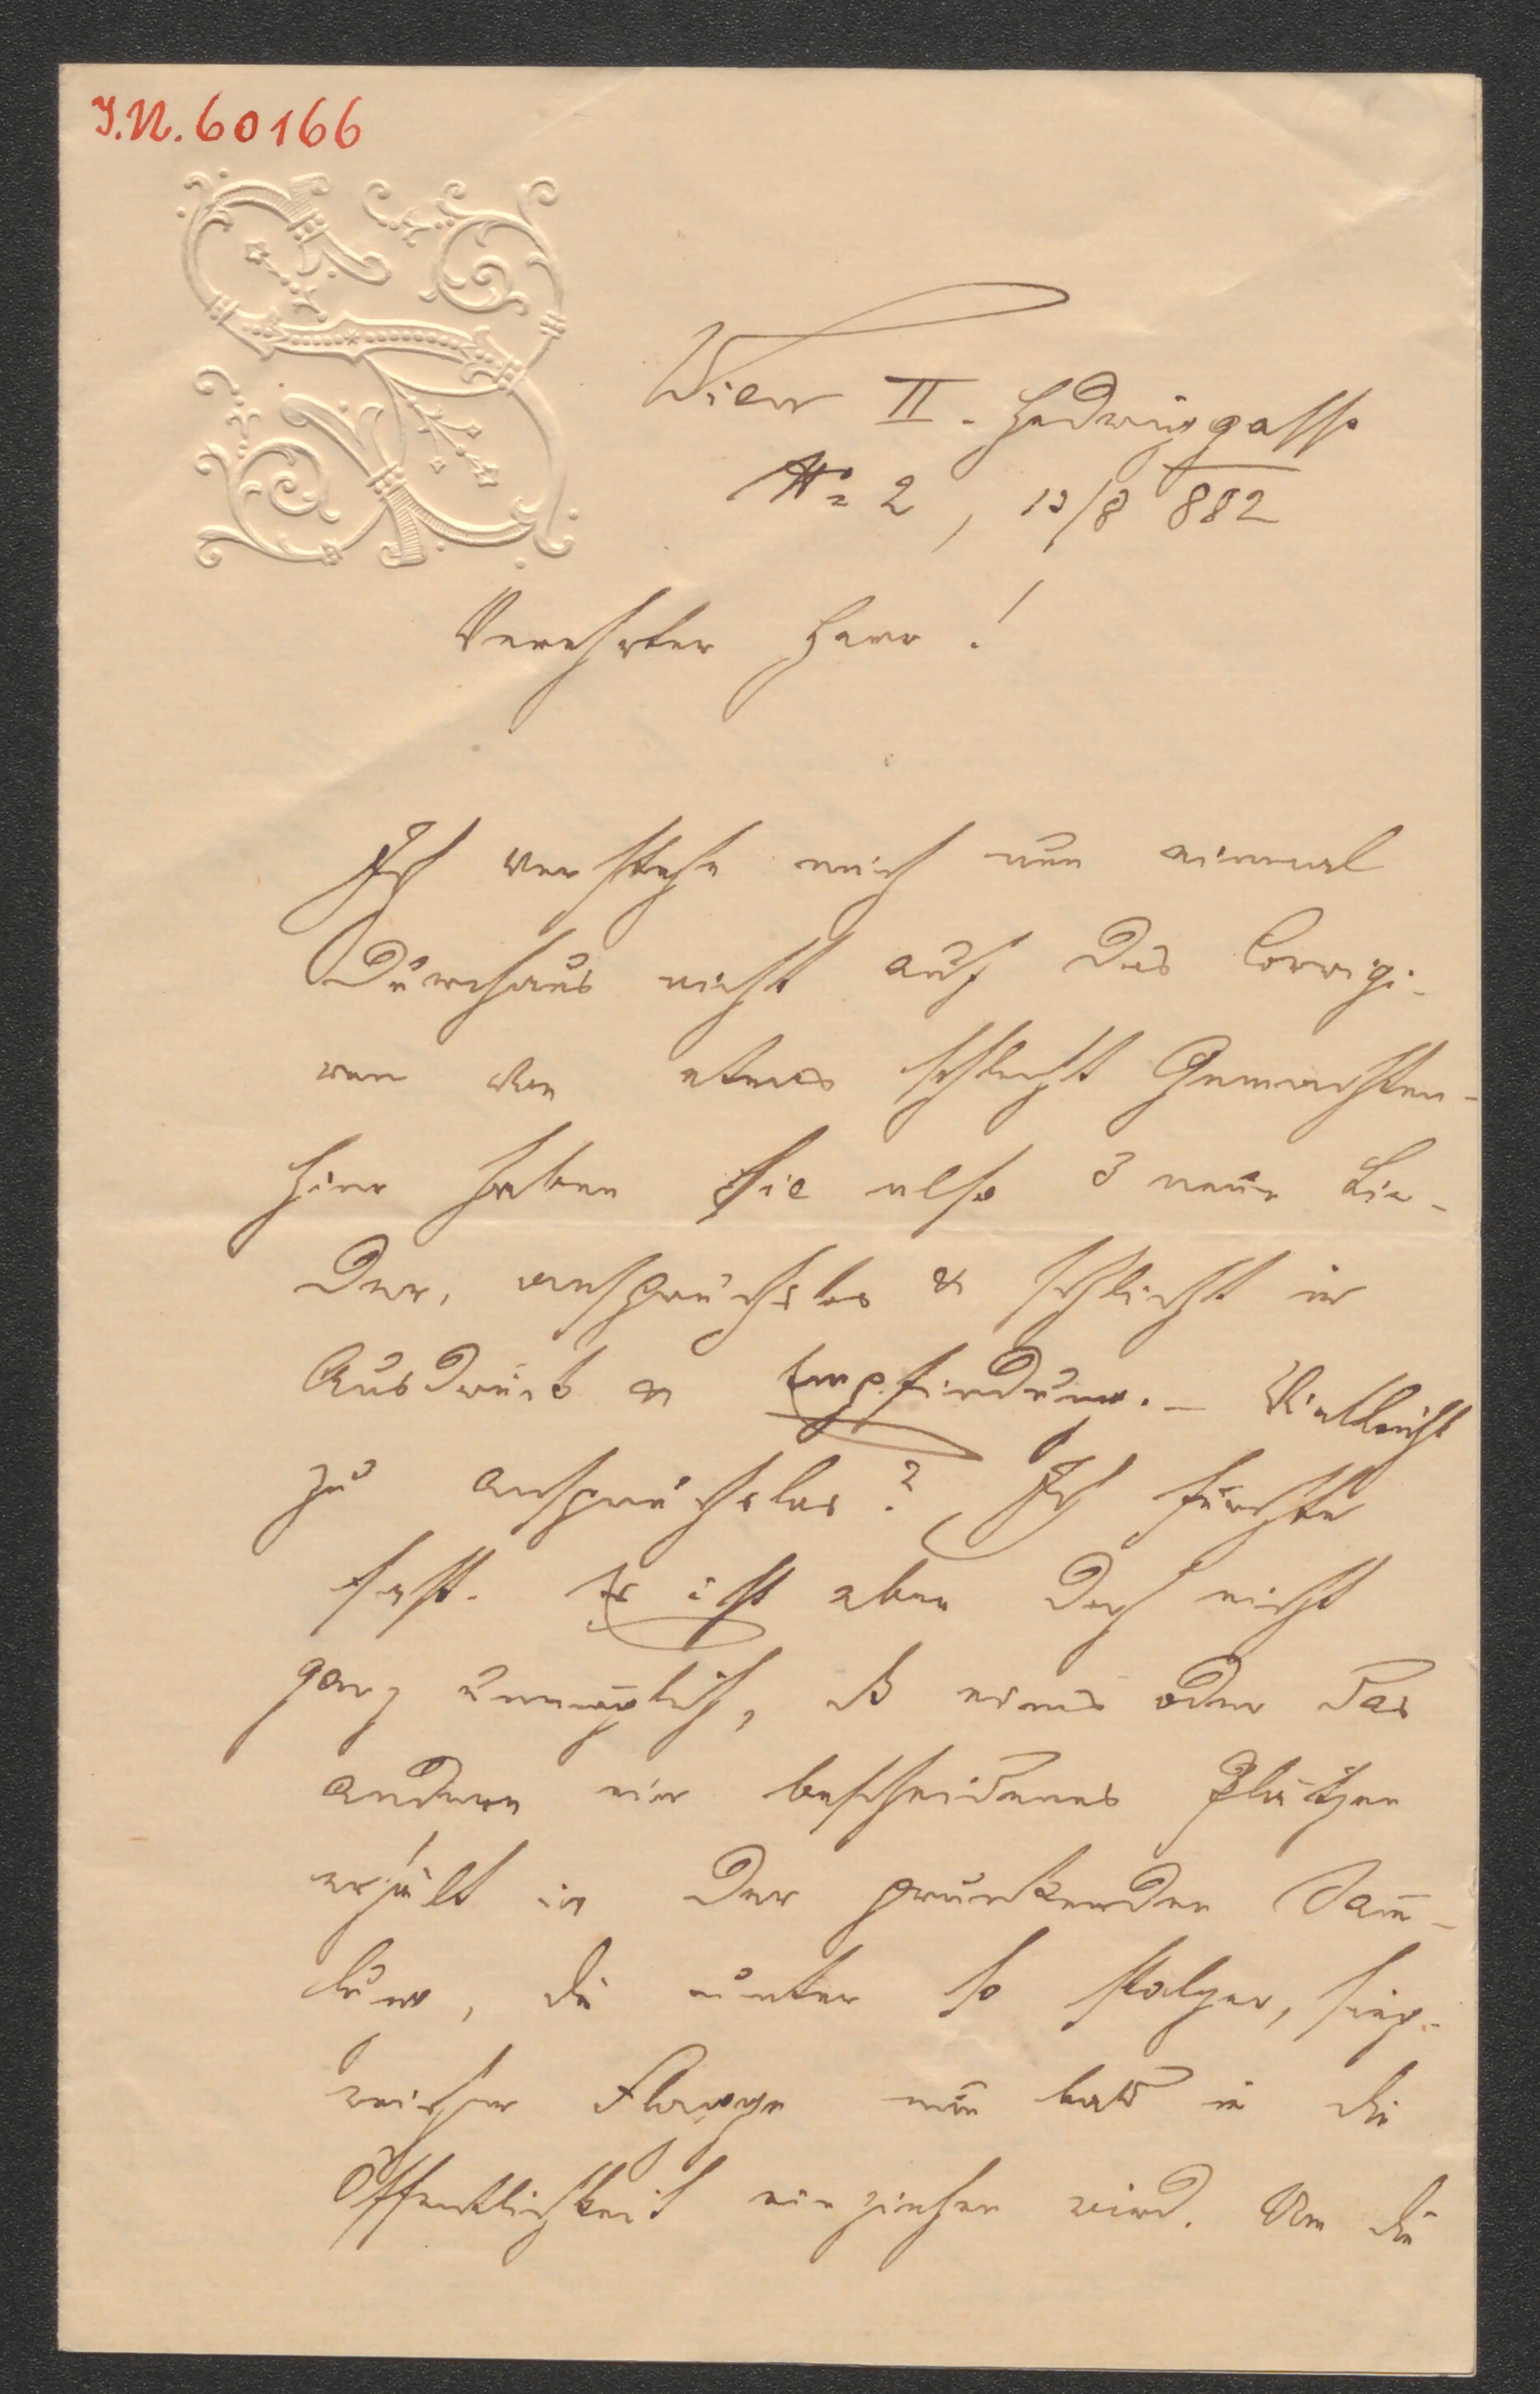 J.N. 60166
Wien II. Hedwiggasse
No 2, 13/8 882
Verehrter Herr!
Ich verstehe mich nun einmal
Durchaus nicht auf das Corrigi-
ren von etwas schlecht Gemachten.
Hier haben Sie also 3 neue Lie-
der, anspruchslos & schlicht in
Ausdruck & Empfindung. – Vielleicht
zu anspruchslos? Ich fürchte
fast. Es ist aber doch nicht
ganz unmöglich, daß eines oder das
andere ein bescheidenes Plätzchen
erhält in der prunkenden Sam̅-
lung, die unter so stolzer, sieg-
reicher Flagge nun bald in die
Öffentlichkeit einziehen wird. Um die